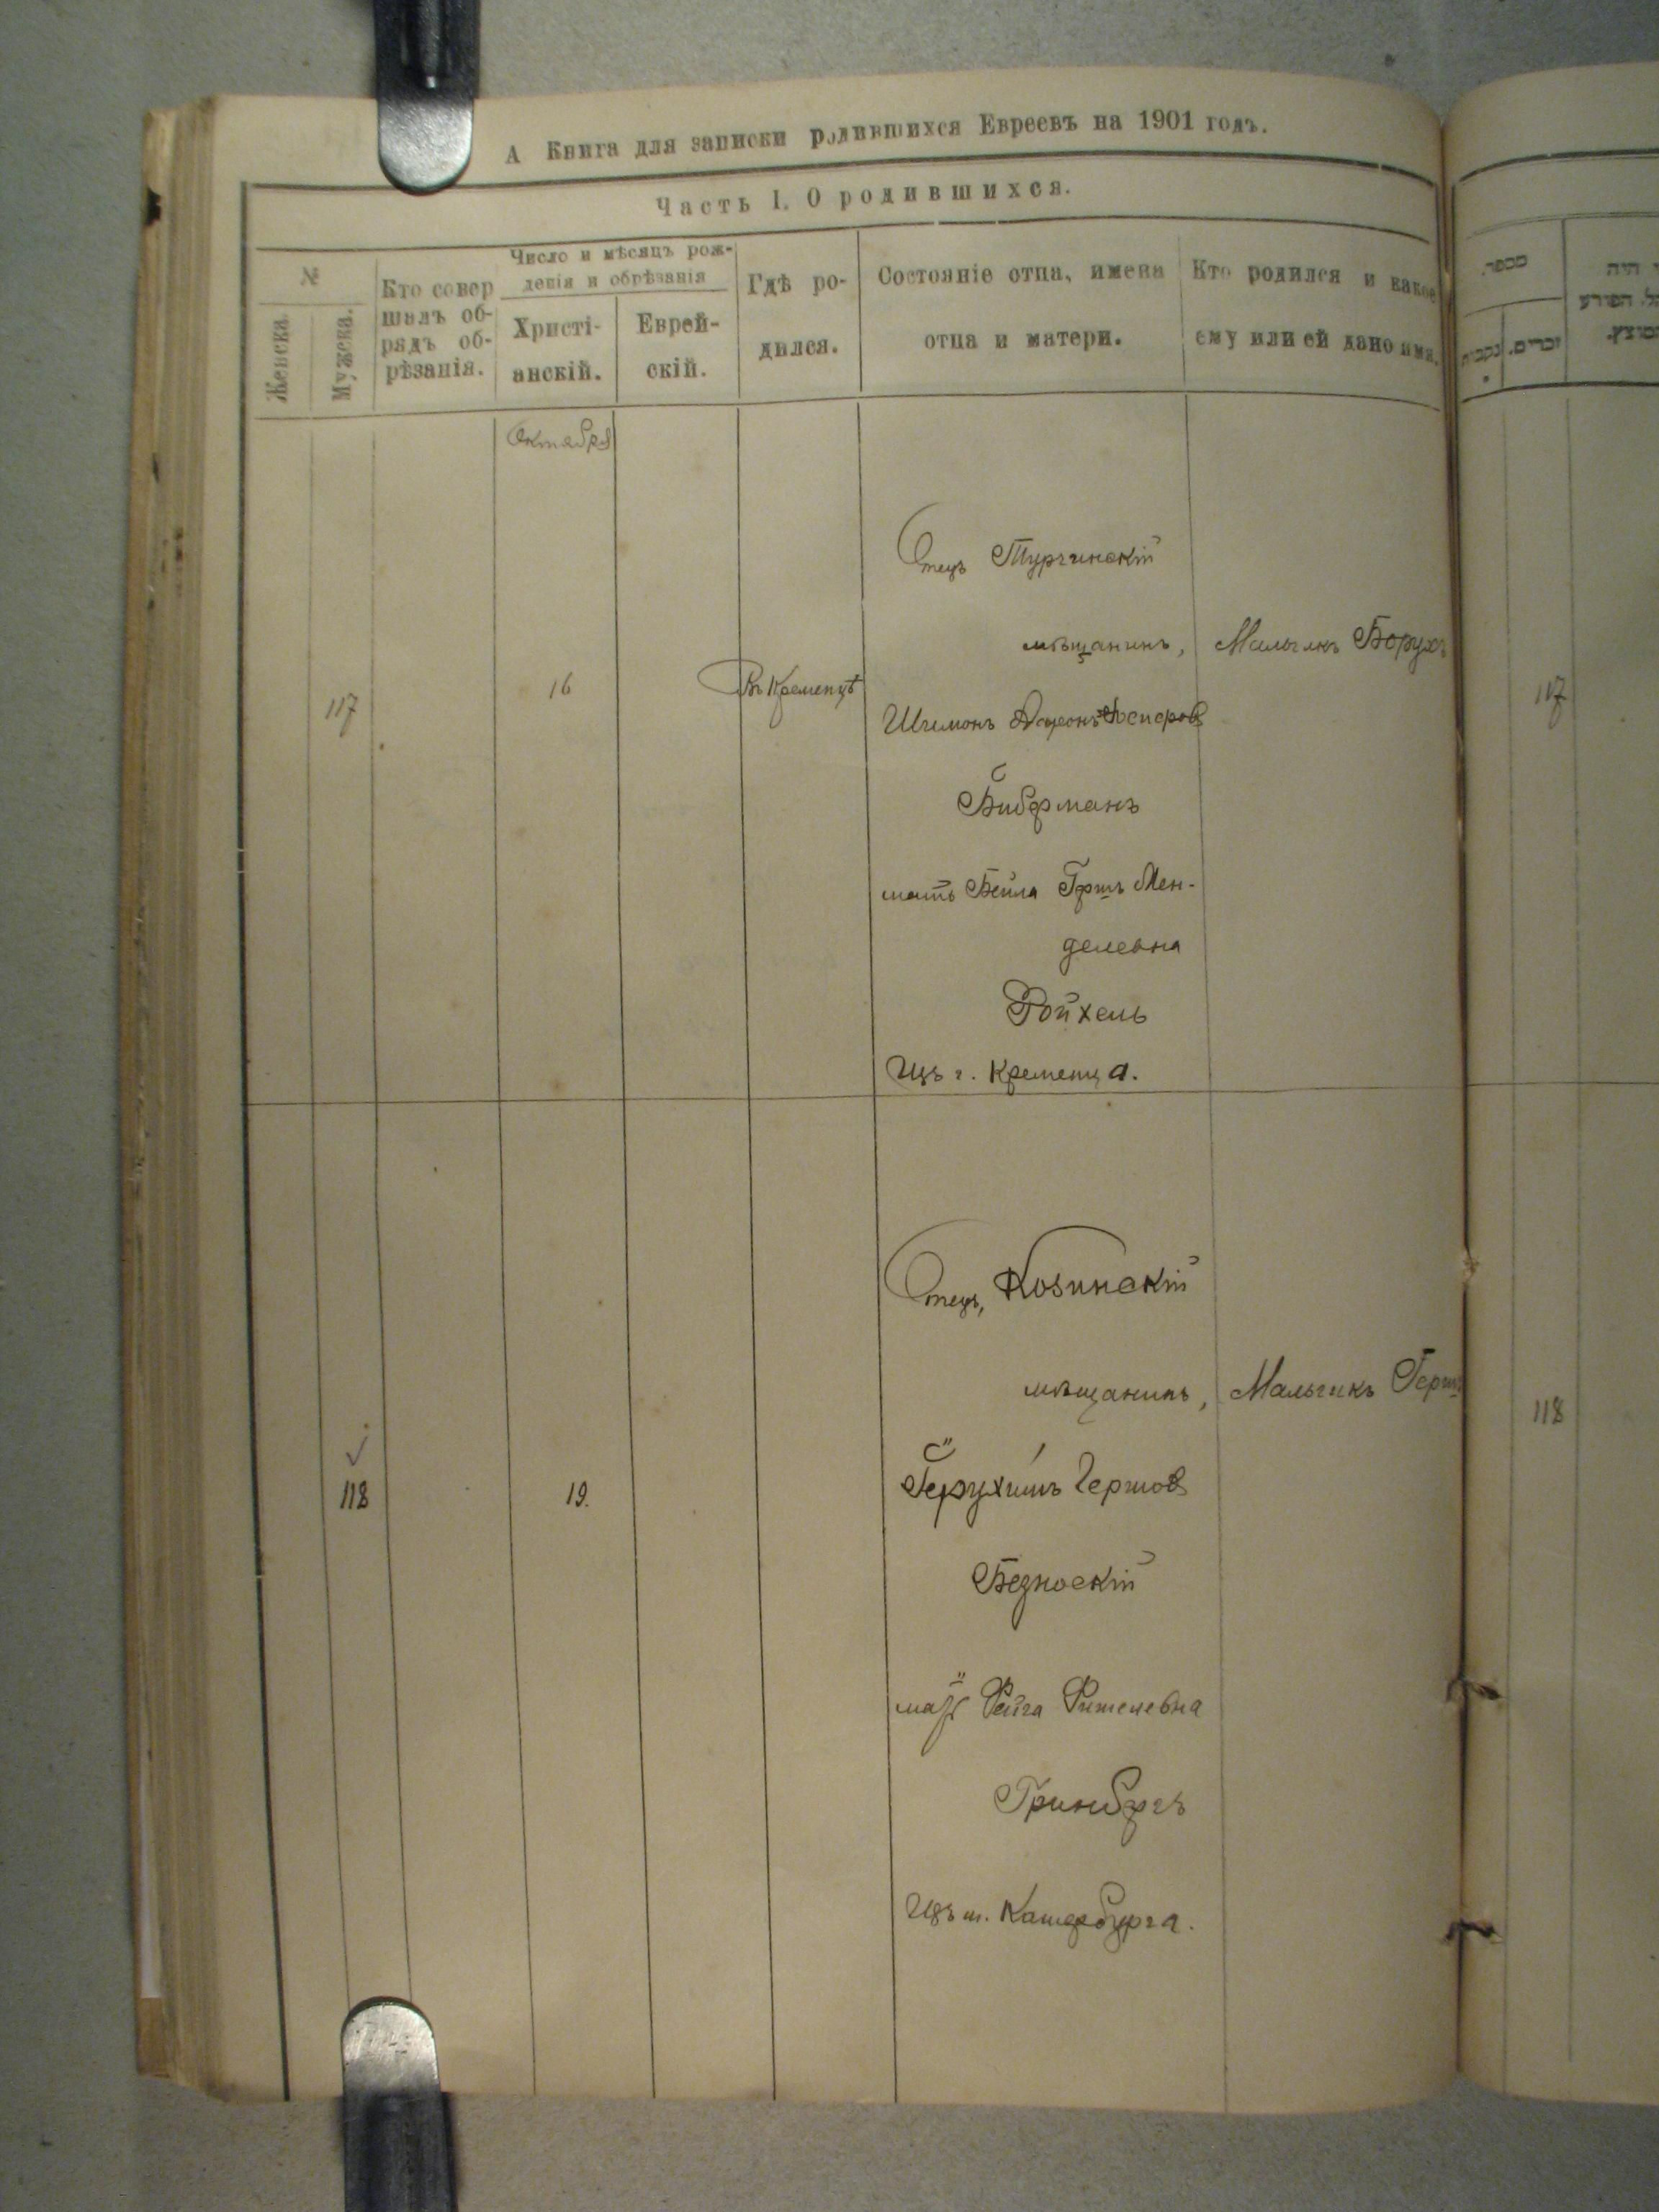 А Книга для записки родившихся Евреевъ на 1901 годъ.
Часть I. О родившихся.
№
Женска.
Мужска.
Кто совер
шалъ об-
рядъ об-
рѣзанія.
Число и мѣсяцъ рож-
денія и обрѣзанія
Христі-
анскій.
Еврей-
скій.
Гдѣ ро-
дился.
Состояніе отца, имена
отца и матери.
Кто родился и какое
ему или ей дано имя.
Октября
117
16
Въ Кременцѣ
Отецъ Турчинскій
мѣщанинъ,
Шимонъ
Биберманъ
мать Бейла Гершъ Мен-
делевна
Ройхель
Изъ г. Кременца.
Мальчикъ Борухъ
118
19.
Отецъ, Козинскій
мѣщанинъ,
Герухимъ Гершов
Безноскій
Фейга Фишелевна
Гринбергъ
Изъ м. Катербурга.
Мальчикъ Герш
מספר.
נקבות
זכרים.
היה
הפורע
117
118